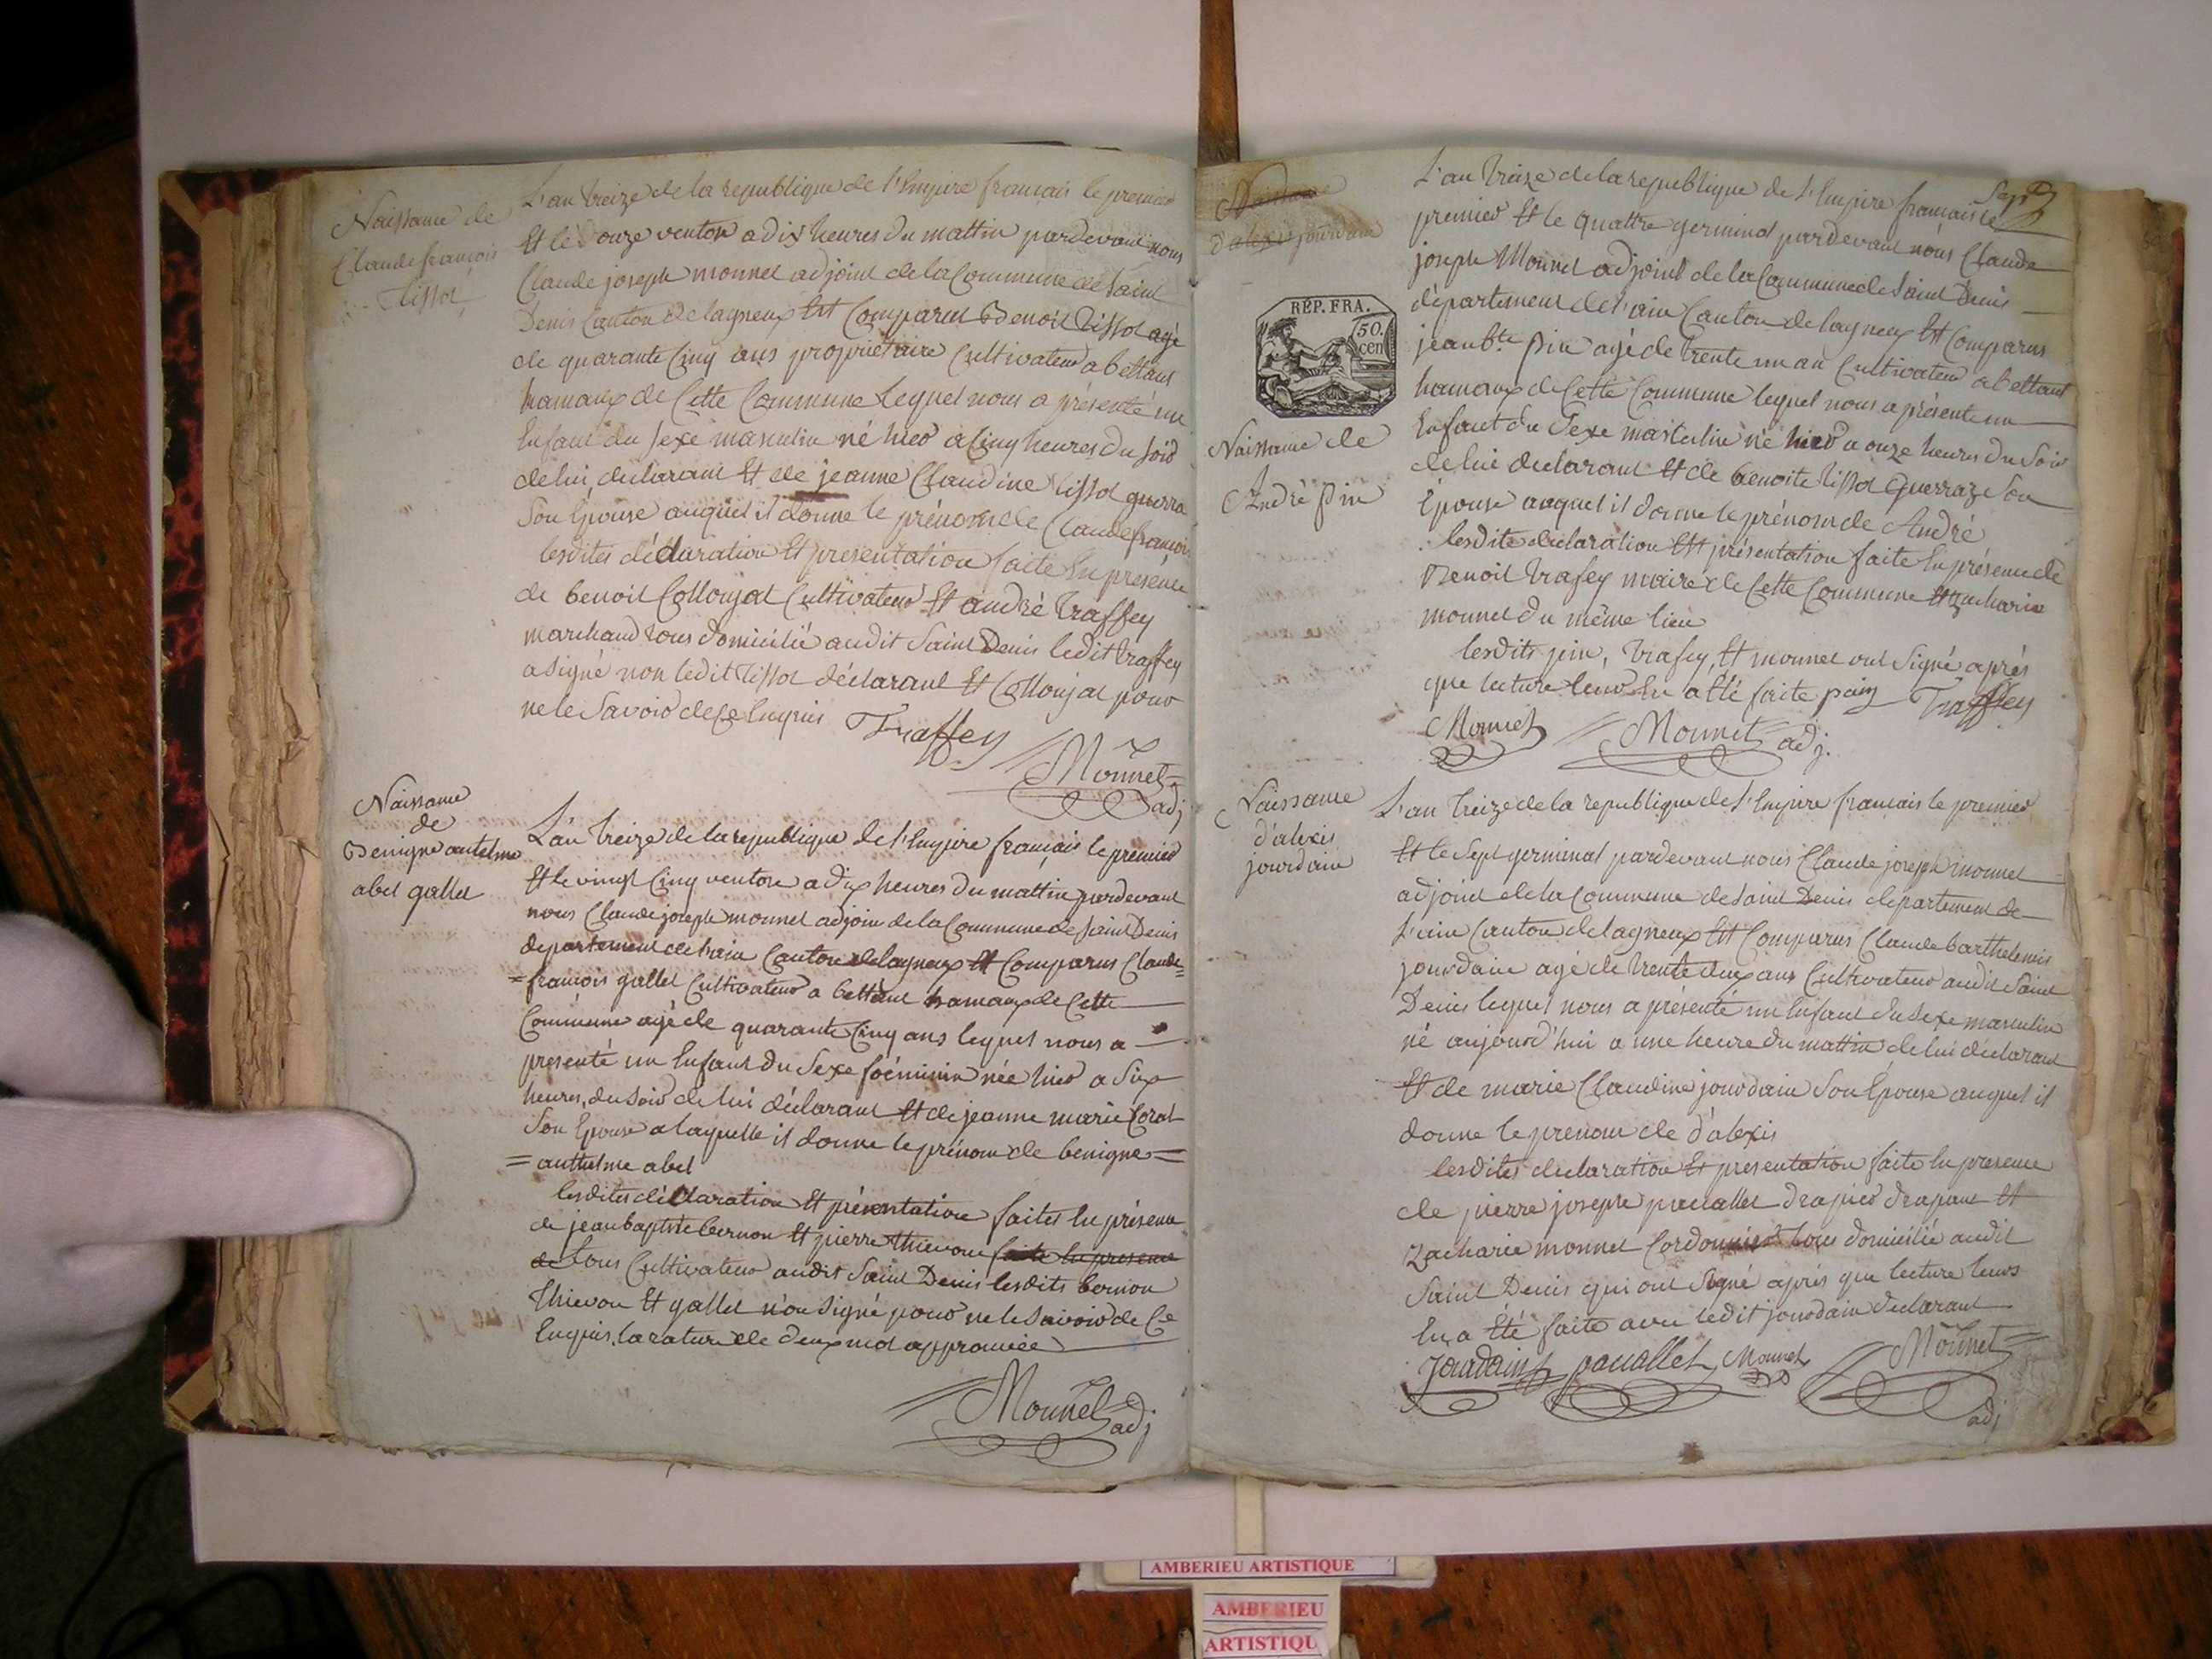 Naissance de
Claude francois
tissot
L'an treize de la republique de l'Empire francais le premier
Et le douze ventose a dix heures du mattin pardevant nous
Claude joseph monnet adjoint de la Commune de Saint
Denis Canton de lagneux Est Comparut Benoit tissot agé
de quarante Cinq ans propriétaire Cultivateur a bettant
hamaux de Cette Commune Lequel nous a présenté un
Enfant du Sexe masculin né hier a Cinq heures du soir
de lui déclarant Et de jeanne Claudine tissot guerra
Son Epouse auquel il donne le prénom de Claude francois
lesdites déclaration Et presentation faite En presence
de benoit Collonjat Cultivateur Et andré traffey
marchand tous domicilié audit Saint Denis ledit traffey
a signé non ledit tissot déclarant Et Collonjat pour
ne le Savoir de Ce Enquis Traffey
Monnet
adj
Naissance
de
Benigne autelme
abel gallet
L'an treize de la republique de l'Empire francais le premier
Et le vingt Cinq ventose a dix heures du mattin pardevant
nous Claude joseph monnet adjoin de la Commune de Saint Denis
departement de l'ain Canton de lagneux Est Comparus Claude=
=francois gallet Cultivateur a bettant hamaux de Cette
Commune agé de quarante Cinq ans lequel nous a
presenté un Enfant du Sexe foéminin née hier a Six
heures du Soir de lui déclarant Et de jeanne marie Corat
Son Epouse a laquelle il donne le prénom de benigne=
=anthelme abel
lesdites déclaration Et présentation faites En présence
de jean baptiste bernon Et pierre thievon faite En presence
de tous Cultivateur audit Saint Denis lesdits bernon
thievon Et gallet n'on Signé pour ne le Savoir de Ce
Enquis, la rature de deux mot approuvée
Monnet adj
Sept
Naissance
d'alexis jourdain
RÉP. FRA.
50.
cen
Naissance de
André pin
L'an treize de la republique de l'Empire francais le
premier Et le quattre germinal pardevant nous Claude
joseph Monnet adjoint de la Commune de Saint Denis
département de l'ain Canton de lagneux Est Comparus
jean bte pin agé de trente un an Cultivateur a bettant
hamaux de Cette Commune lequel nous a présenté un
Enfant du Sexe masculin né hier a onze heures du Soir
de lui declarant Et de benoite tissot Guerraz Son
Epouse auquel il donne le prénom de André
lesdite declaration Est présentation faite En présence de
Benoit trafey maire de Cette Commune Et zacharie
monnet du même lieu
lesdits pin, trafey, Et monnet ont Signé aprés
que lecture leur En a Eté faite pain Traffey
Monnet Monnet adj.
Naissance
d'alexis
jourdain
L'an treize de la republique de l'Empire francais le premier
Et le Sept germinal pardevant nous Claude joseph monnet
adjoint de la Commune de Saint Denis département de
l'ain Canton de lagneux Est Comparus Claude barthelemis
jourdain agé de trente deux ans Cultivateur audit Saint
Denis lequel nous a présenté un Enfant du Sexe masculin
né aujourd'hui a une heure du mattin de lui déclarant
Et de marie Claudine jourdain Son Epouse auquel il
donne le prenom de d'alexis
lesdites declaration Et presentation faite En presence
de pierre joseph pacallet drapier drapant Et
zacharie monnet Cordonnier tous domicilié audit
Saint Denis qui ont Signé aprés que lecture leurs
En a Eté faite avec ledit jourdain declarant
Jourdain pacallet Monnet Monnet
adj
AMBERIEU ARTISTIQUE
AMBERIEU
ARTISTIQU